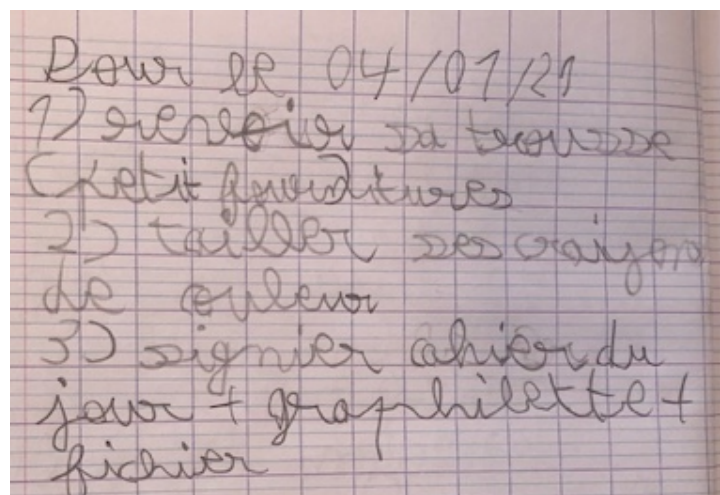 Pour le 04/01/21
1) revoir sa trousse
(petit fournitures
2) tailler ses craiyon
de couleur
3) signier cahier du
jour + graphilette +
fichier